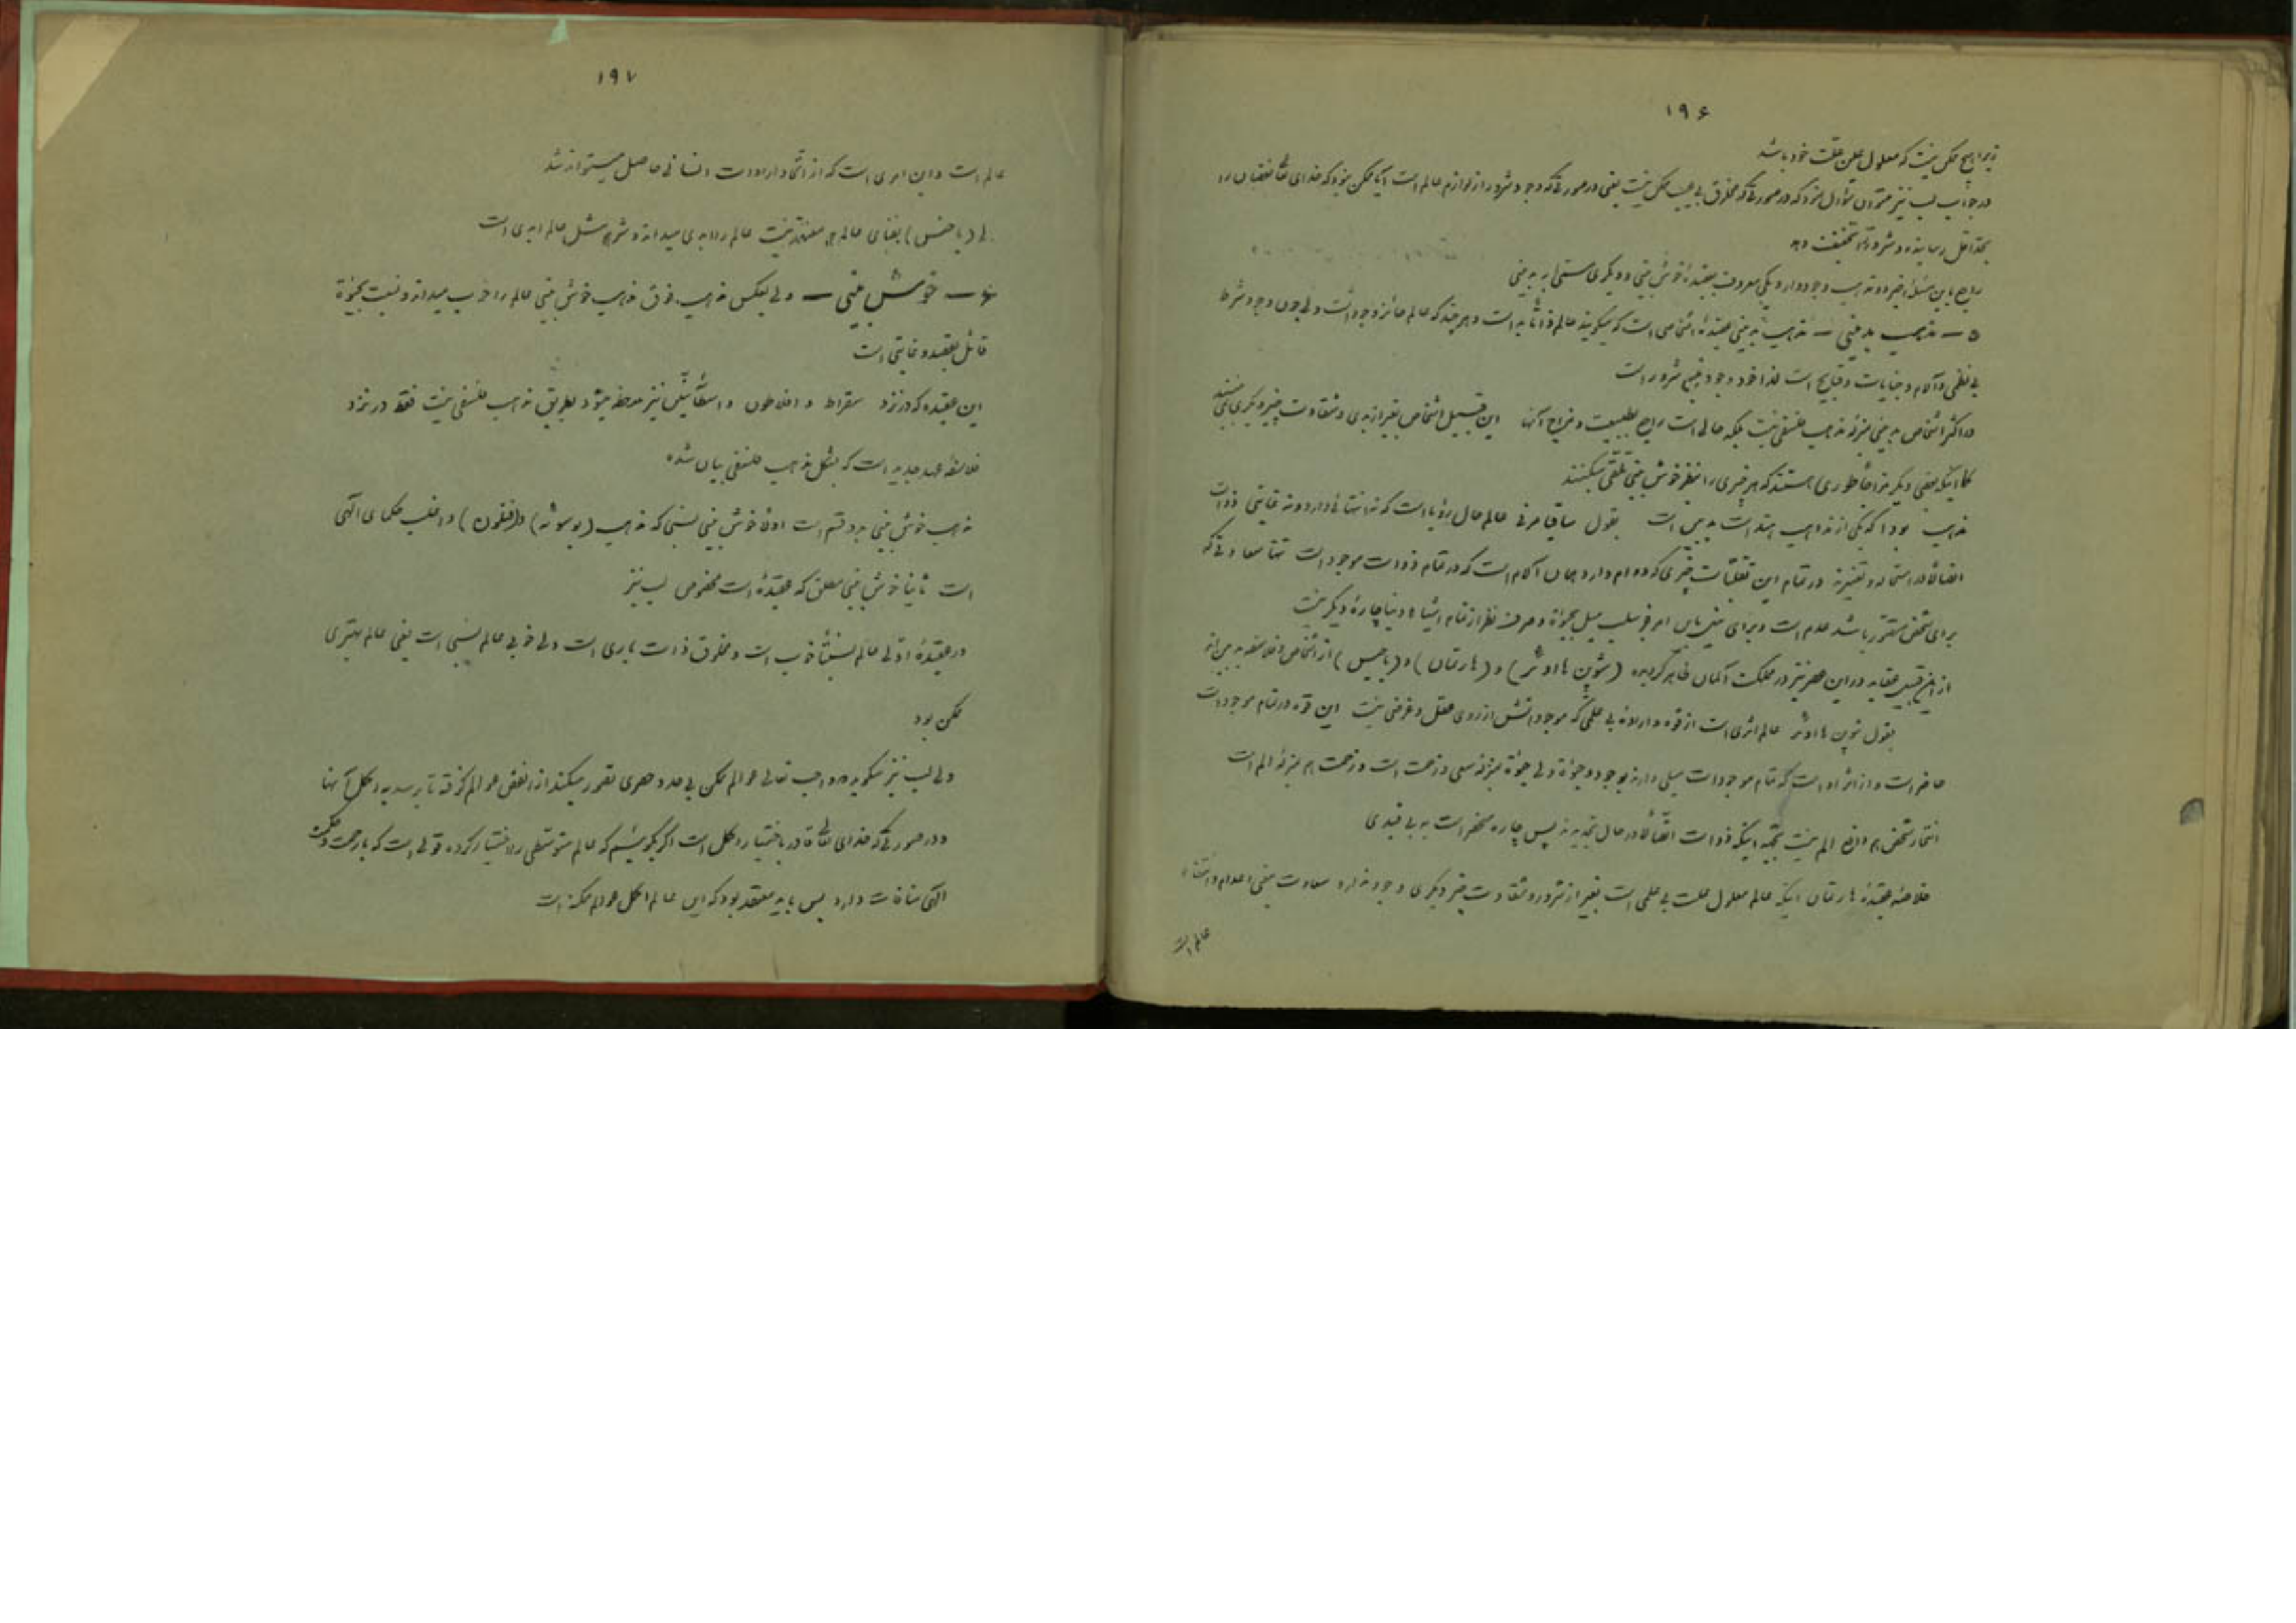 ۱۹۶
زیرا هیچ ممکن نیست که معلول عین علت خود باشد
در جواب لیب نیز میتوان سؤال نمود که در صورتی که مخلوق بی عیب ممکن نیست یعنی در صورتی که وجود شرور از لوازم عالم است آیا ممکن نبود که خدای تعالی نقصان را
بحد اقل رسانیده و شرور را تخفیف دهد
راجع باین مسئله اخیر دو مذهب وجود دارد یکی معروف بعقیدهٔ خوش بینی و دیگری مسمی به بد بینی
۵ — مذهب بد بینی — مذهب بد بینی عقیدهٔ اشخاصی است که میگویند عالم ذاتاً بد است و هر چند که عالم حائز وجود است ولی چون وجود شرط
بی نظمی و آلام و جنایات و قبایح است لذا خود وجود منبع شرور است
در اکثر اشخاص بد بینی بمنزله مذهب فلسفی نیست بلکه حالی است راجع بطبیعت و مزاج آنها این قبیل اشخاص بغیر از بدی و شقاوت چیز دیگری نمی بینند
کما اینکه بعضی دیگر مزاجاً طوری هستند که هر چیزی را بنظر خوش بینی تلقی میکنند
مذهب بودا که یکی از مذاهب هند است بد بین است بقول ساقیامونی عالم حال رؤیا است که نه انتهائی دارد و نه غایتی ذوات
اتصالاً در استحاله و تغییرند در تمام این تقلبات چیزی که دوام دارد همان آلام است که در تمام ذوات موجود است تنها سعادتی که
برای شخص متصور باشد عدم است و برای نیل باین امر فوز سلب میل بحیوة و صرف نظر از تمام اشیاء دنیا چارهٔ دیگر نیست
از این قبیل عقاید در این عصر نیز در مملکت آلمان ظاهر گردیده (شوپن هاوئر) و (هارتمان) و (باهنس) از اشخاص و فلاسفه بد بین اند
بقول شوپن هاوئر عالم اثری است از قوه و ارادهٔ بی علمی که موجوداتش از روی عقل و غرضی نیست این قوه در تمام موجودات
حاضر است و از اثر او است که تمام موجودات میلی دارند بوجود و حیوة ولی حیوة بمنزله سعی و زحمت است و زحمت هم بمنزله الم است
انتحار شخص هم دافع الم نیست بجهة اینکه ذوات اتصالاً در حال تجدیدند پس چاره منحصر است به بی قیدی
خلاصه عقیدهٔ هارتمان اینکه عالم معلول علت بی علمی است بغیر از شرور و شقاوت چیز دیگری وجود ندارد سعادت یعنی اعدام و انتفاء
عالم است
۱۹۷
عالم است و این امری است که از اتحاد ارادات انسانی حاصل میتواند شد
ولی (باهنس) بفنای عالم هم معتقد نیست عالم را ابدی میداند و شر هم مثل عالم ابدی است
۶ — خوش بینی — ولی بعکس مذهب فوق مذهب خوش بینی عالم را خوب میداند و نسبت بحیوة
قائل بقصد و غایتی است
این عقیده که در نزد سقراط و افلاطون و اسطائیس نیز ملاحظه میشود بطریق مذهب فلسفی نیست فقط در نزد
فلاسفه عهد جدید است که بشکل مذهب فلسفی بیان شده
مذهب خوش بینی بدو قسم است اولاً خوش بینی نسبی که مذهب (بوسوئه) و (فنلون) و اغلب حکمای الهی
است ثانیاً خوش بینی مطلق که عقیدهٔ است مخصوص لیب نیز
در عقیدهٔ اولی عالم نسبتاً خوب است و مخلوق ذات باری است ولی خوبی عالم نسبی است یعنی عالم بهتری
ممکن بود
ولی لیب نیز میگوید واجب تعالی عوالم ممکن بی حد و حصری تصور میکند از انقص عوالم گرفته تا برسد به اکمل آنها
و در صورتی که خدای تعالی قادر باختیار اکمل است اگر بگوئیم که عالم متوسطی را اختیار کرده قولی است که با رحمت و حکمت
الهی منافات دارد پس باید معتقد بود که این عالم اکمل عوالم ممکنه است